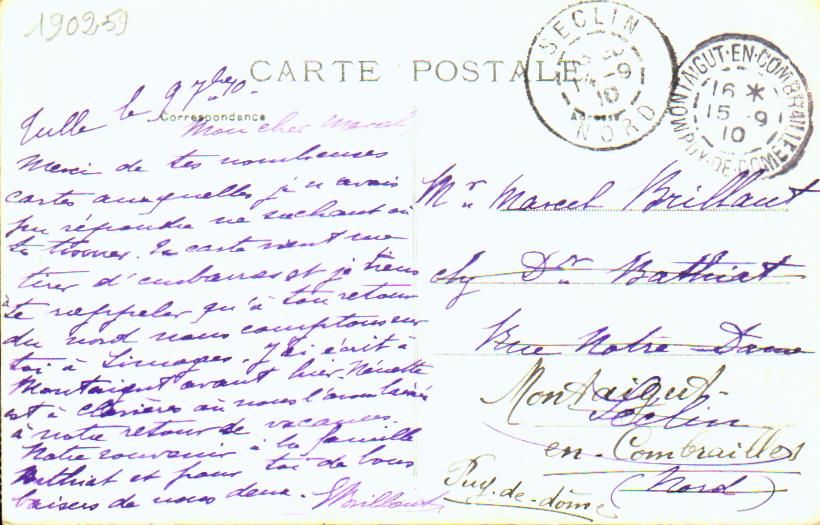 1902-59
CARTE POSTALE
SECLIN
NORD
9
10
MONTAIGUT-EN-COMBRAILLE
16 *
15 -9
10
PUY-DE-DOME
Correspondance
Adresse
Tulle le 9 7bre 10.
Mon cher Marcel,
Merci de tes nombreuses
cartes auxquelles je n'avais
pu répondre ne sachant où
te trouver. Ta carte vient me
tirer d'embarras et je tiens
à te rappeler qu'à ton retour
du nord nous comptons sur
toi à Limoges. J'ai écrit à
Montaigut avant hier. Nénette
est à Clavières où nous l'avons
à notre retour de vacances.
Notre souvenir à la famille
Bathiat et pour toi de bons
baisers de nous deux. Brillaut
Mr. Marcel Brillaut
chez Dr. Bathiat
Rue Notre Dame
Seclin
(Nord)
Montaigut-
en-Combrailles
Puy-de-dôme